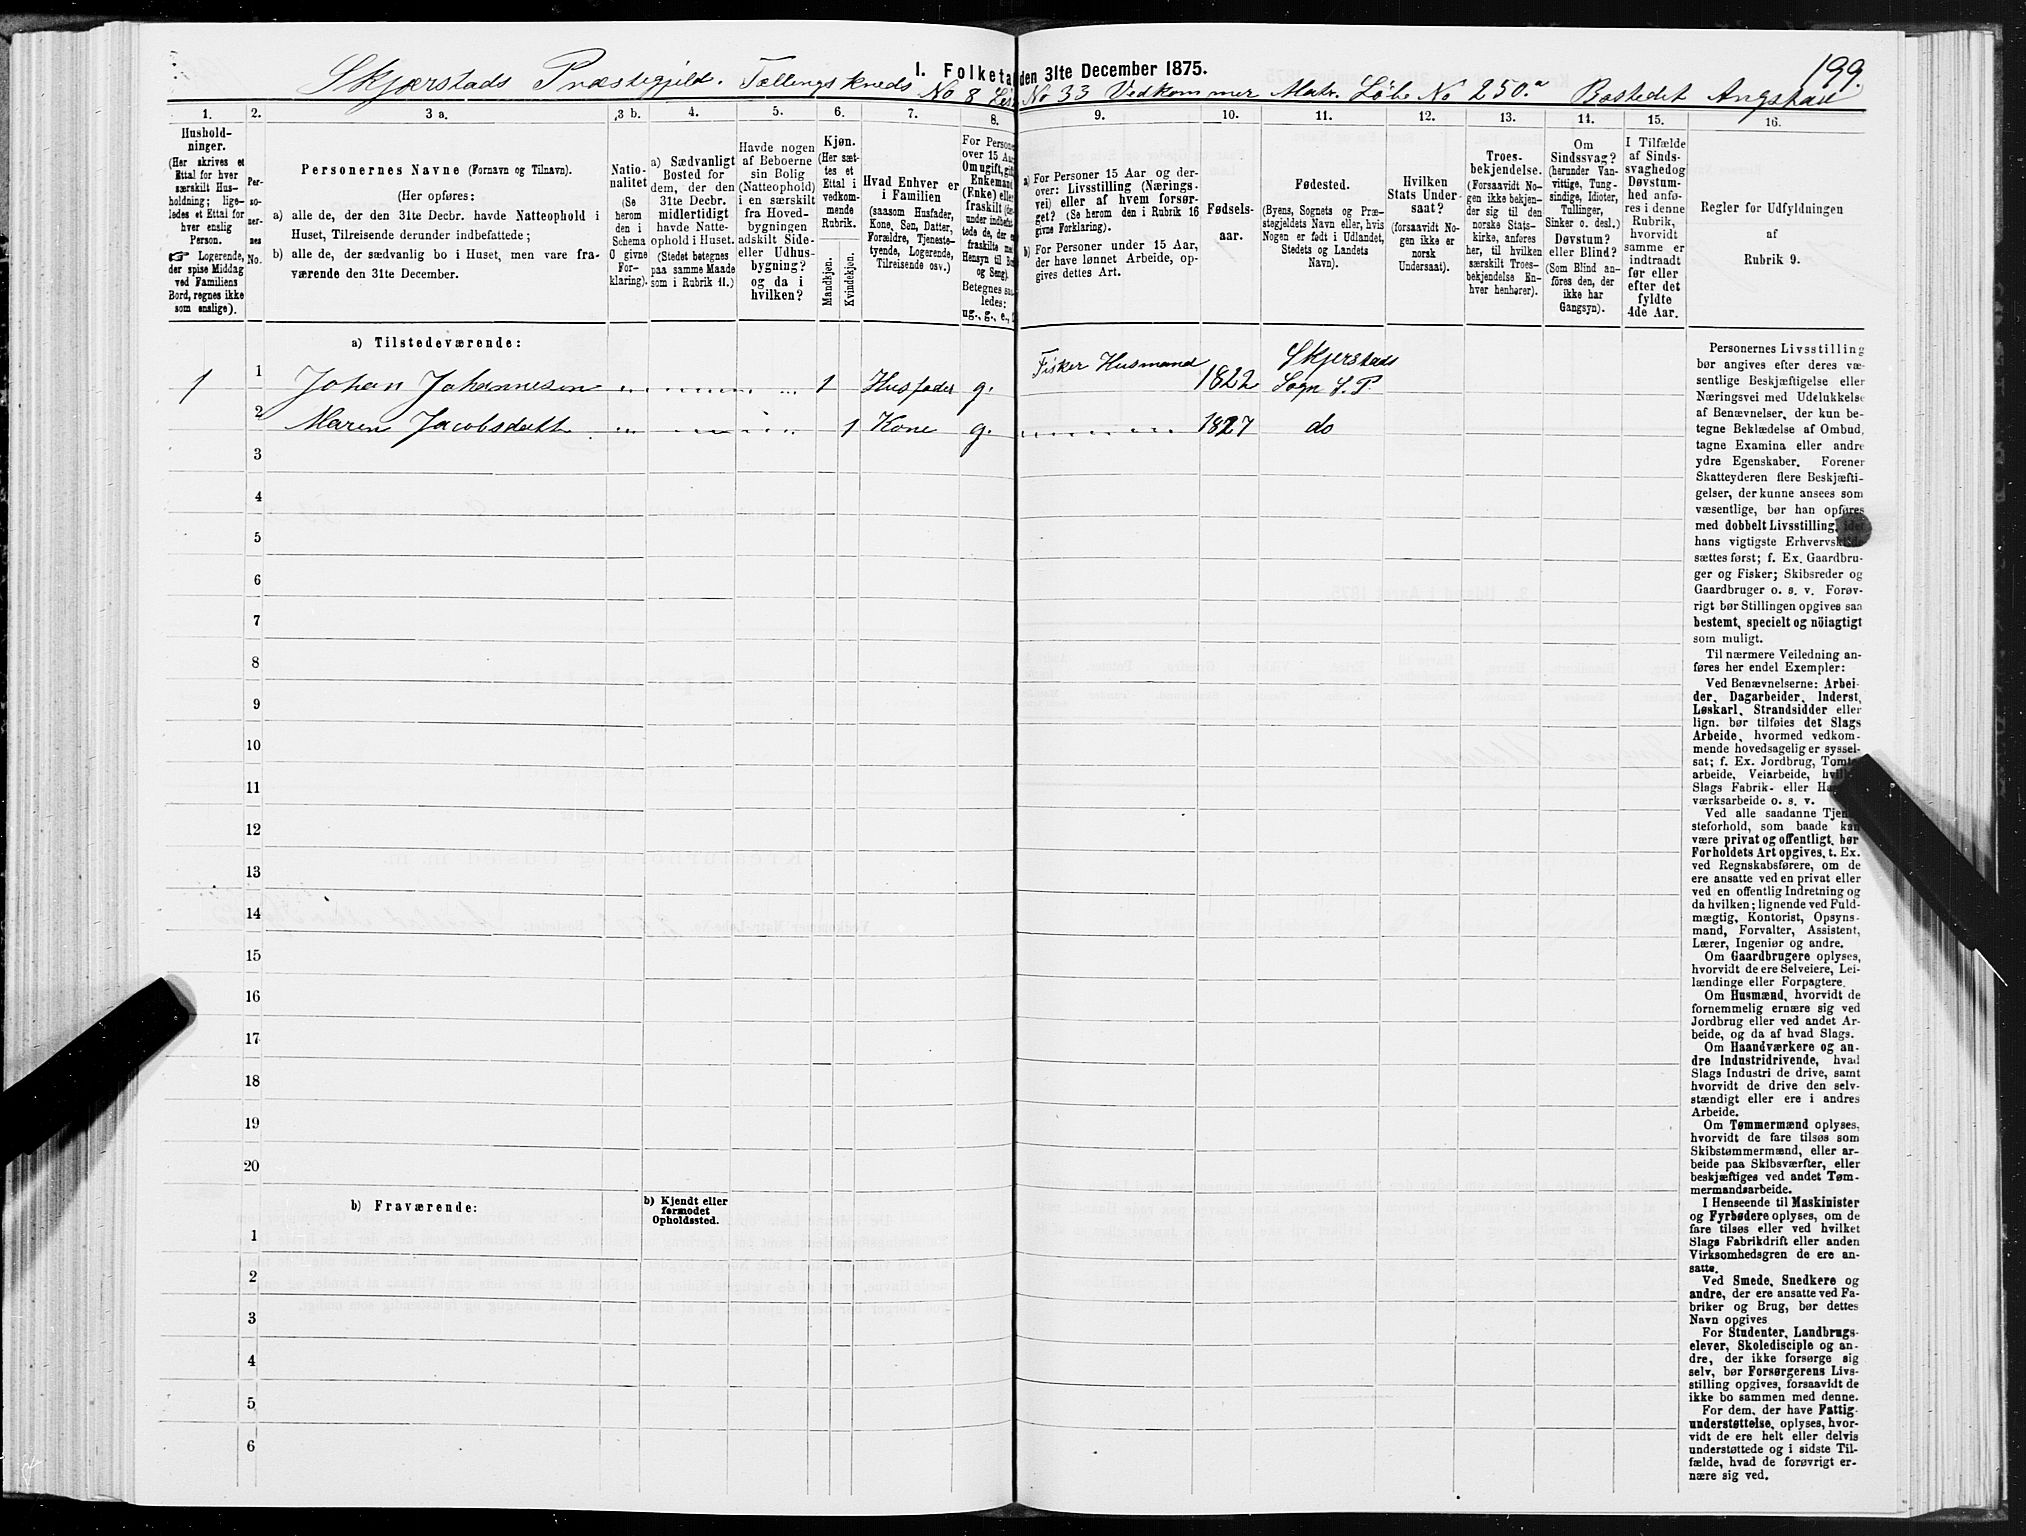 199.
I. Folketa den 31te December 1875.
Skjærstads Præstegjeld. Tællingskreds No 8 Lis No 33 Vedkommer Matr. Løbe No 250.a Bostedet Angstau
1. 2. 3 a. 3 b. 4. 5. 6. 7. 8. 9. 10. 11. 12. 13. 14. 15. 16.
Hushold-
ninger.
(Her skrives et
Ettal for hver
særskilt Hus-
holdning; lige-
ledes et Ettal for
hver enslig
Person.
☞ Logerende,
der spise Middag
ved Familiens
Bord, regnes ikke
som enslige).
Per-
so-
ner-
nes
No.
Personernes Navne (Fornavn og Tilnavn).
(Her opføres:
a) alle de, der den 31te Decbr. havde Natteophold i
Huset, Tilreisende derunder indbefattede;
b) alle de, der sædvanlig bo i Huset, men vare fra-
værende den 31te December.
Natio-
nalitet
(Se
herom
den i
Schema
O givne
For-
klaring).
a) Sædvanligt
Bosted for
dem, der den
31te Decbr.
midlertidigt
havde Natte-
ophold i Huset.
(Stedet betegnes
paa samme Maade
som i Rubrik 11.)
Havde nogen
af Beboerne
sin Bolig
(Natteophold)
i en særskilt
fra Hoved-
bygningen
adskilt Side-
eller Udhus-
bygning?
og da i
hvilken?
Kjøn.
(Her sæt-
tes et
Ettal i
vedkom-
mende
Rubrik.
Mandkjøn.
Kvindekjøn.
Hvad Enhver er
i Familien
(saasom Husfader,
Kone, Søn, Datter,
Forældre, Tjeneste-
tyende, Logerende,
Tilreisende osv.)
For Persone
over 15 Aar
Om ugift, gift,
Enkemand
(Enke) eller
fraskilt (de-
under indbefat-
tede de, der e
fraskilte me
Hensyn til Bo
og Seng).
Betegnes saa-
ledes:
ug., g., e.,
a) For Personer 15 Aar og der-
over: Livsstilling (Nærings-
vei) eller af hvem forsør-
get? (Se herom den i Rubrik 16
givne Forklaring).
b) For Personer under 15 Aar,
der have lønnet Arbeide, op-
gives dettes Art.
Fødsels-
aar.
Fødested.
(Byens, Sognets og Præ-
stegjeldets Navn eller, hvis
Nogen er født i Udlandet,
Stedets og Landets
Navn).
Hvilken
Stats Under-
saat?
(forsaavidt No-
gen ikke er
norsk
Undersaat).
Troes-
bekjendelse.
(Forsaavidt No-
gen ikke bekjen-
der sig til den
norske Stats-
kirke, anføres
her, til hvilken
særskilt Troes-
bekjendelse En-
hver henhører).
Om
Sindssvag?
(herunder Van-
vittige, Tung-
sindige, Idioter,
Tullinger,
Sinker o. desl.)
Døvstum?
eller Blind?
(Som Blind an-
føres den, der
ikke har
Gangsyn).
I Tilfælde
af Sinds-
svaghed og
Døvstum-
hed anfø-
res i denne
Rubrik,
hvorvidt
samme er
indtraadt
før eller
efter det
fyldte
4de Aar.
Regler for Udfyldningen
af
Rubrik 9.
a) Tilstedeværende:
1 1 Johan Johannesen 1 Husfader g. Fisker Husmand 1822 Skjerstads
Sogn S. P
2 Maren Jacobsdatt 1 Kone g. 1827 do
3
4
5
6
7
8
9
10
11
12
13
14
15
16
17
18
19
20
b) Fraværende:
b) Kjendt eller
formodet
Opholdssted.
1
2
3
4
5
6
Personernes Livsstilling
bør angives efter deres væ-
sentlige Beskjæftigelse eller
Næringsvei med Udelukkelse
af Benævnelser, der kun be-
tegne Beklædelse af Ombud,
tagne Examina eller andre
ydre Egenskaber. Forener
Skatteyderen flere Beskjæfti-
gelser, der kunne ansees som
væsentlige, bør han opføres
med dobbelt Livsstilling, idet
hans vigtigste Erhvervskilde
sættes først; f. Ex. Gaardbru-
ger og Fisker; Skibsreder og
Gaardbruger o. s. v. Forøv-
rigt bør Stillingen opgives saa
bestemt, specielt og nöiagtigt
som muligt.
Til nærmere Veiledning an-
føres her endel Exempler:
Ved Benævnelserne: Arbei-
der, Dagarbeider, Inderst,
Løskarl, Strandsidder eller
lign. bør tilføies det Slags
Arbeide, hvormed vedkom-
mende hovedsagelig er syssel-
sat; f. Ex. Jordbrug, Tomte-
arbeide, Veiarbeide, hvilket
Slags Fabrik- eller Haand-
værksarbeide o. s. v.
Ved alle saadanne Tjene-
steforhold, som baade kan
være privat og offentligt, bør
Forholdets Art opgives, t. Ex.
ved Regnskabsførere, om de
ere ansatte ved en privat eller
ved en offentlig Indretning og
da hvilken; lignende ved Fuld-
mægtig, Kontorist, Opsyns-
mand, Forvalter, Assistent,
Lærer, Ingeniør og andre.
Om Gaardbrugere oplyses,
hvorvidt de ere Selveiere, Lei-
lændinge eller Forpagtere.
Om Husmænd, hvorvidt de
fornemmelig ernære sig ved
Jordbrug eller ved andet Ar-
beide, og da af hvad Slags.
Om Haandværkere og an-
dre Industridrivende, hvad
Slags Industri de drive, samt
hvorvidt de drive den selv-
stændigt eller ere i andres
Arbeide.
Om Tømmermænd oplyses,
hvorvidt de fare tilsøs som
Skibstømmermænd, eller ar-
beide paa Skibsværfter, eller
beskjæftiges ved andet Tøm-
mermandsarbeide.
I Henseende til Maskinister
og Fyrbødere oplyses, om de
fare tilsøs eller ved hvilket
Slags Fabrikdrift eller anden
Virksomhedsgren de ere an-
satte.
Ved Smede, Snedkere og
andre, der ere ansatte ved Fa-
briker og Brug, bør dettes
Navn opgives
For Studenter, Landbrugs-
elever, Skoledisciple og an-
dre, der ikke forsørge sig
selv, bør Forsørgerens Livs-
stilling opgives, forsaavidt de
ikke bo sammen med denne.
For dem, der have Fattig-
understøttelse, oplyses, hvor-
vidt de ere helt eller delvis
understøttede og i sidste Til-
fælde, hvad de forøvrigt er-
nære sig ved.